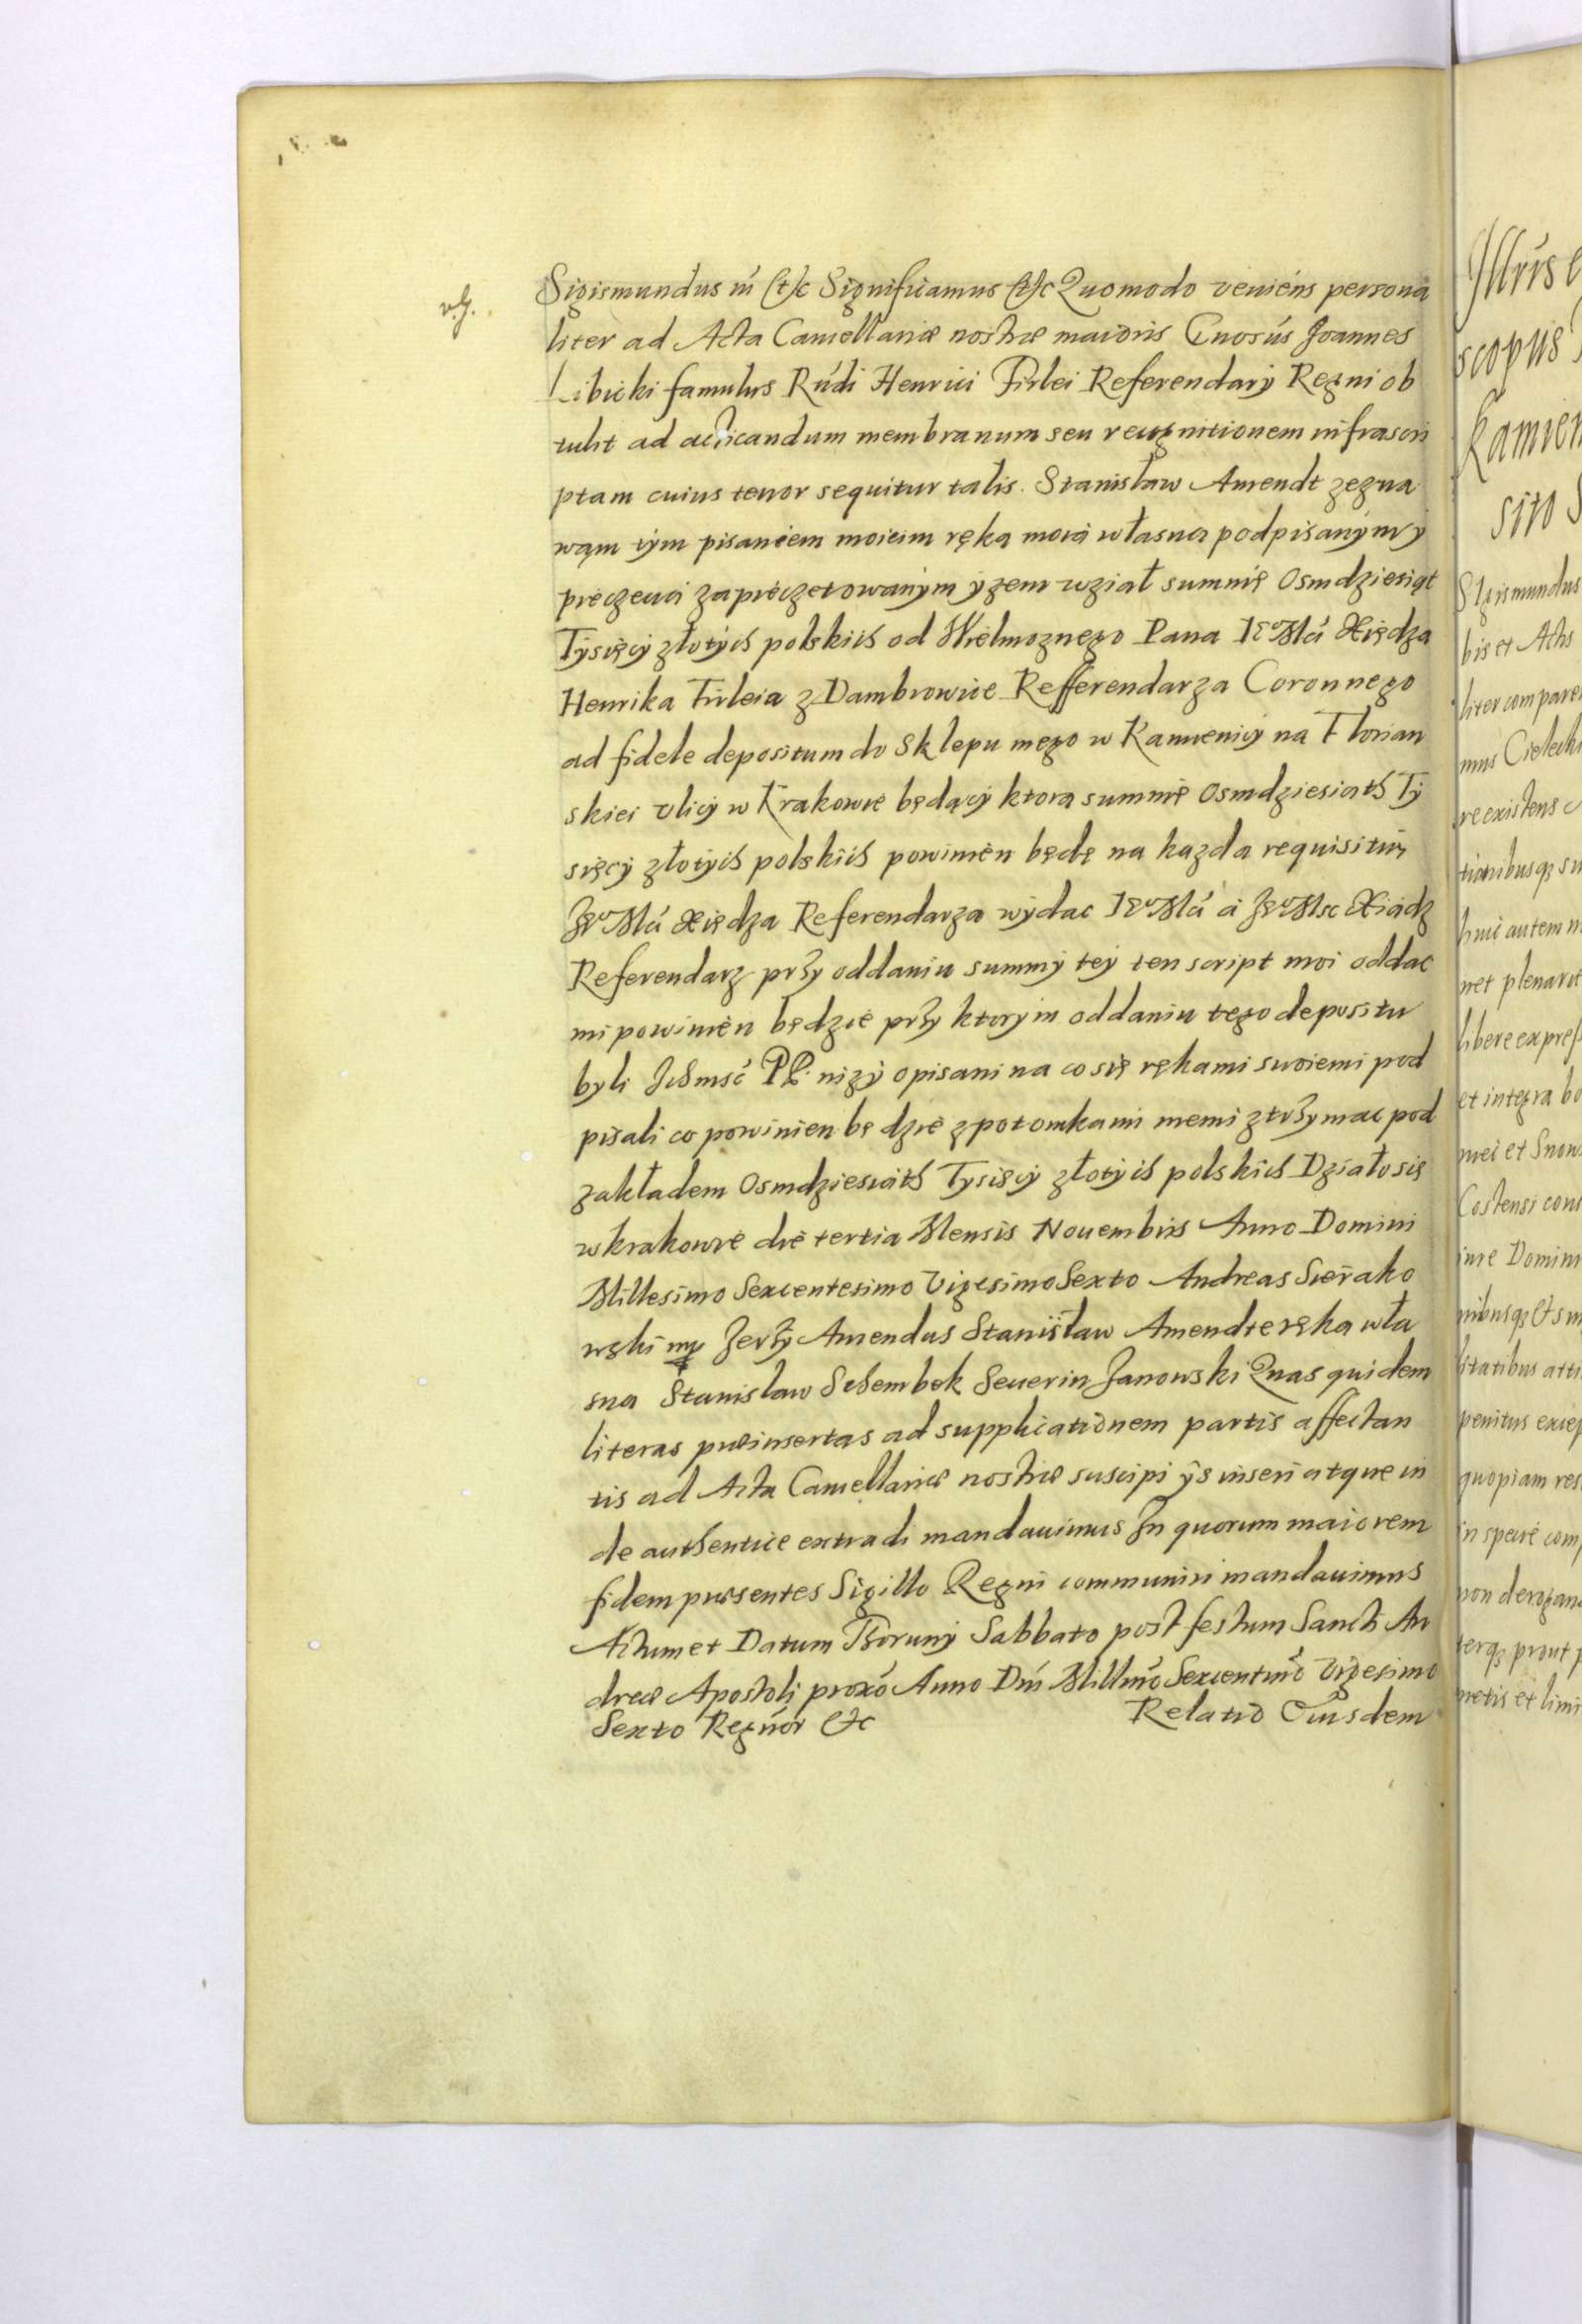 Sigismundus iii &c Significamus &c Quomodo veniens persona
liter ad Acta Cancellariæ nostræ maioris Gnosús Joannes
Libicki famulus Rúdi Henrici Firlei Referendarÿ Regni ob
tulit ad acticandum membranum seu recognitionem infrascri
ptam cuius tenor sequitur talis. Stanisław Amendt zezna
wąm tÿm pisaniem moieim ręką moią własną podpisanÿm ÿ
pieczęcią zapieczętowanÿm ÿzem wział summę Osmdziesiąt
Tysięcÿ złotÿch polskich od Wielmoznego Pana Je° Mći Xiędza
Henrika Firleia z Dambrowice Refferendarza Coronnego
ad fidele depositum do Sklepu mego w Kamienicÿ na Florian
skiei vlicÿ w Krakowie będącÿ ktorą summę Osmdziesiąth Tÿ
sięcÿ złotÿch polskich powinien będę na kazda requisitią
Je° Mći Xiędza Referendarza wÿdac Je° Mći a Je° Msc Xiądz
Referendarz przÿ oddaniu summÿ teÿ ten script moi oddac
mi powinien będzie przÿ ktorÿm oddaniu tego depositu
byli Ichmsć PP. nizÿ opisani na co się rękami swoiemi pod
pisali co powinien będzie z potomkami memi ztrzymac pod
zakładem Osmdziesiąth Tysięcÿ złotÿch polskich Działo się
w krakowie die tertia Mensis Nouembris Anno Domini
Millesimo Sexcentesimo Vigesimo Sexto Andreas Sierako
wski mp Jerzÿ Amendus Stanisław Amendt ręką wła
sną Stanislaw Schembek Seuerin Janowski Quas quidem
literas præinsertas ad supplicationem partis affectan
tis ad Acta Cancellariæ nostræ suscipi ÿs inseri atque in
de authentice extradi mandauimus In quorum maiorem
fidem præsentes Sigillo Regni communiri mandauimus
Actum et Datum Thorunÿ Sabbato post festum Sancti An
dreæ Apostoli proxó Anno Dni Millmó Sexcentmó Vigesimo
Sexto Regnór &c Relatio Eiusdem
Illris e
scopus
Kamien
sito S
Sigismundus
bis et Actis
liter compare
mus Cielecki
re existens
tionibusq; su
huic autem
net plenarie
libere expres
et integra bo
mei et
Costensi cons
iure Domini
nibusq; et
litatibus atti
penitus excep
quopiam res
in specie com
non derogan
terq; prout p
metis et limi